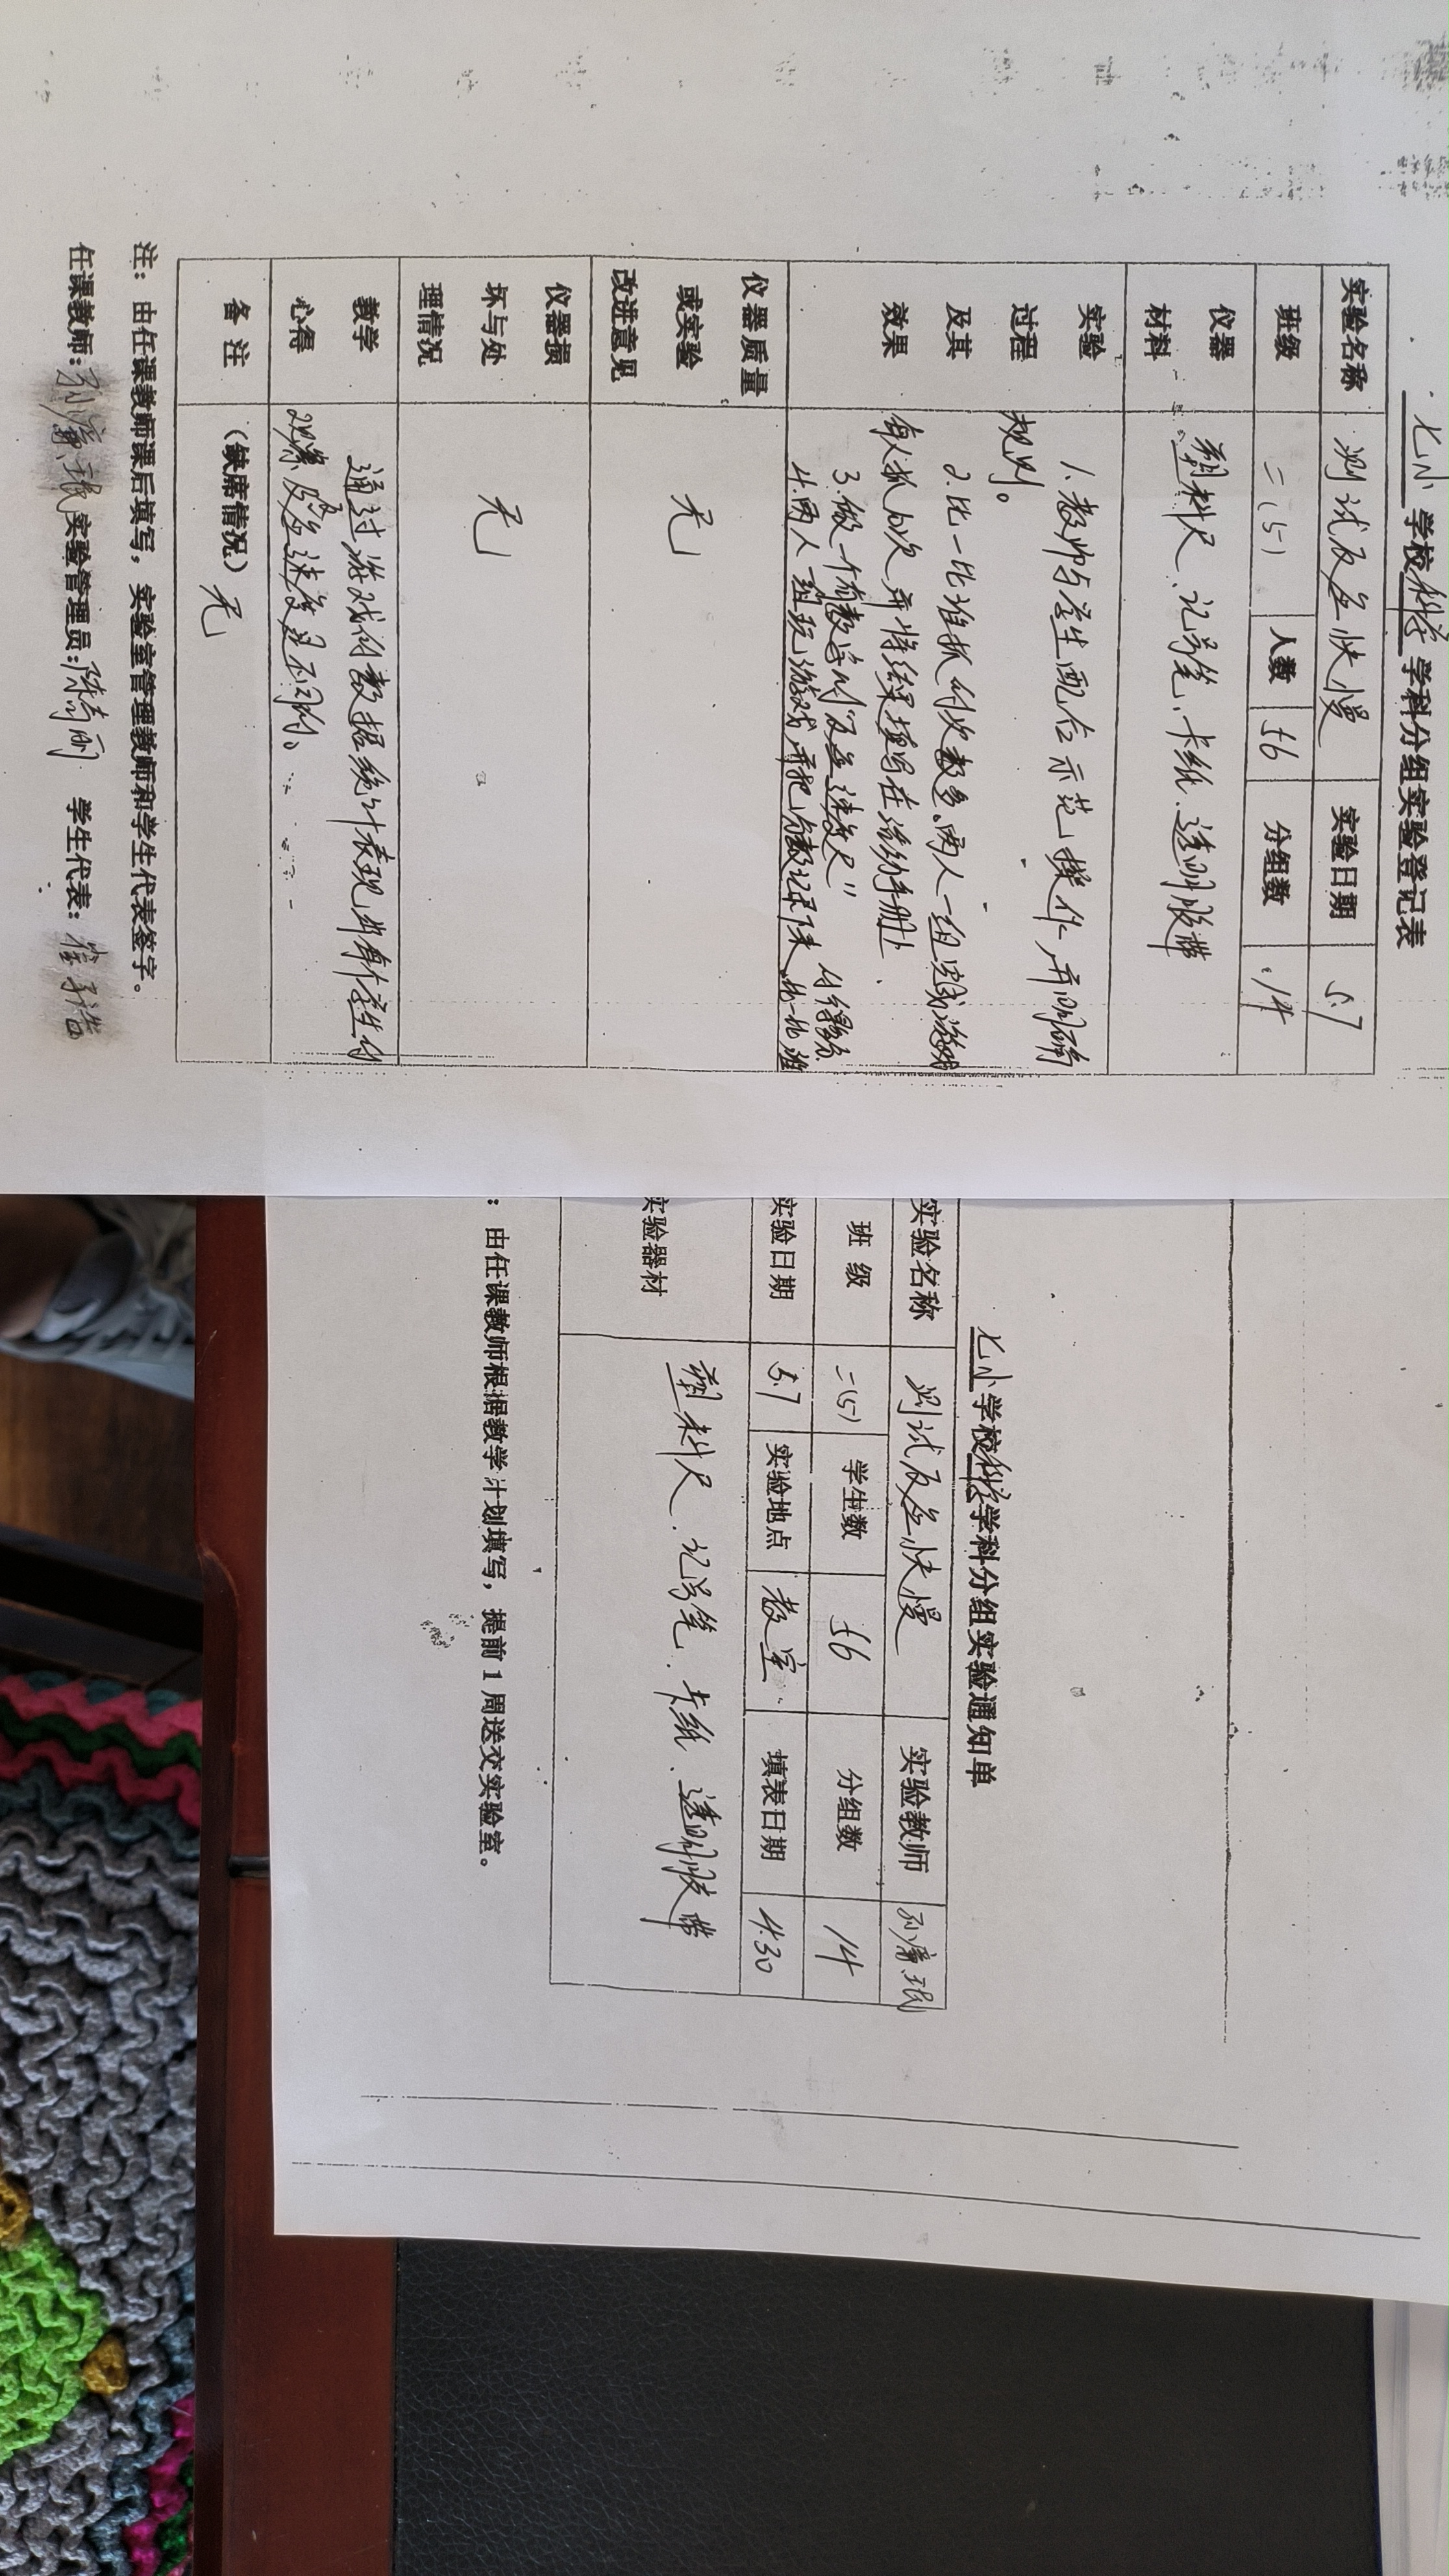 七小学校科学学科分组实验登记表
实验名称 测试反应快慢 实验日期 5.7
班级 二(5) 人数 56 分组数 14
仪器材料 塑料尺、记号笔、卡纸、透明胶带
实验过程及其效果
1.教师与学生配合示范操作,并明确
规则。
2.比一比谁抓的次数多。两人一组 游戏
每人抓10次 并将结果填写在活动手册上
3.做一个有数字的“反应速度尺”
4.两人一组玩游戏并把分数记录下来,比一比谁
的得分
仪器质量或实验改进意见 无
仪器损坏与处理情况 无
教学心得
通过游戏的数据统计表现出每个学生的
观察反应速度是不同的。
备注 (缺席情况) 无
注:由任课教师课后填写,实验室管理教师和学生代表签字。
任课教师: 实验管理员: 学生代表:
七小学校科学学科分组实验通知单
实验名称 测试反应快慢 实验教师
班级 二(5) 学生数 56 分组数 14
实验日期 5.7 实验地点 教室 填表日期 4.30
实验器材 塑料尺、记号笔、卡纸、透明胶带
:由任课教师根据教学计划填写,提前1周送交实验室。